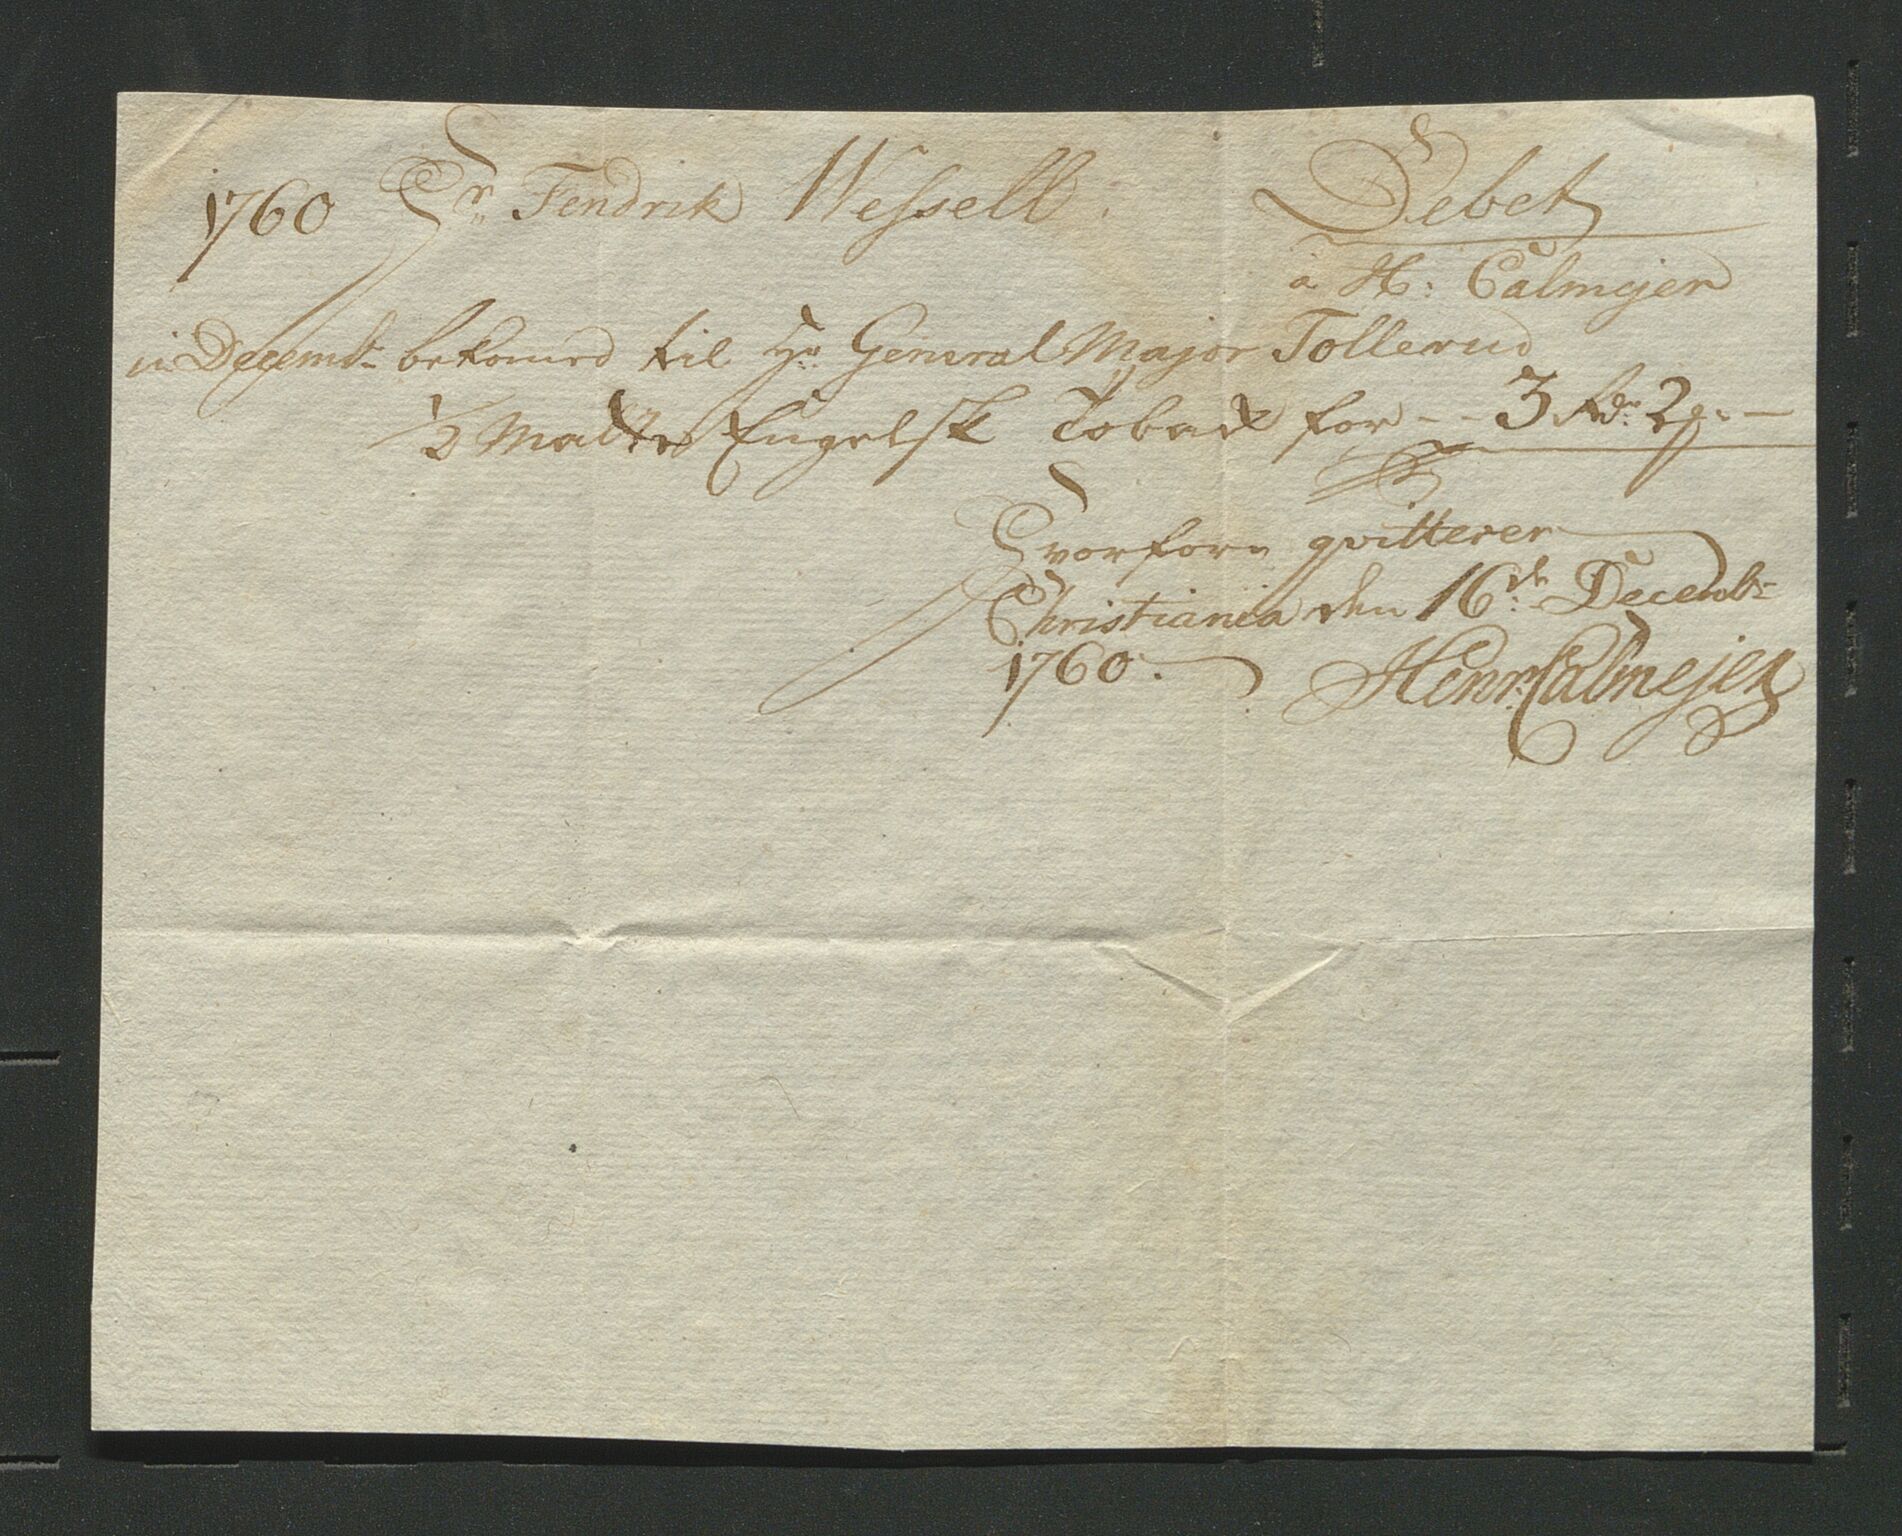 1760 Hr Fendrik Wessell. Debet
a H: Calmejer
in Decembr bekomed til Hr General Major Tollerud
1/2 Engelsk Tobak for -- 3 Rdr 2 –
Hvorfore qvitterer
Christiania den 16de Decembr
1760. Henr: Calmejer